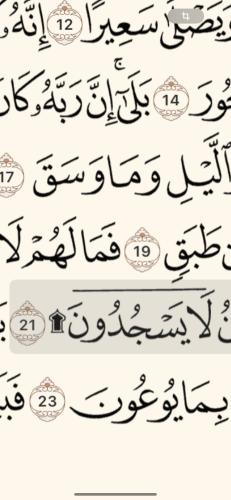 وَيَصْلَىٰ سَعِيرًا 12 إِنَّهُۥ
14 بَلَىٰٓۚ إِنَّ رَبَّهُۥ كَانَ
وَٱلَّيْلِ وَمَا وَسَقَ 17
طَبَقٍ 19 فَمَا لَهُمْ لَا
لَا يَسْجُدُونَ ۩ 21
بِمَا يُوعُونَ 23